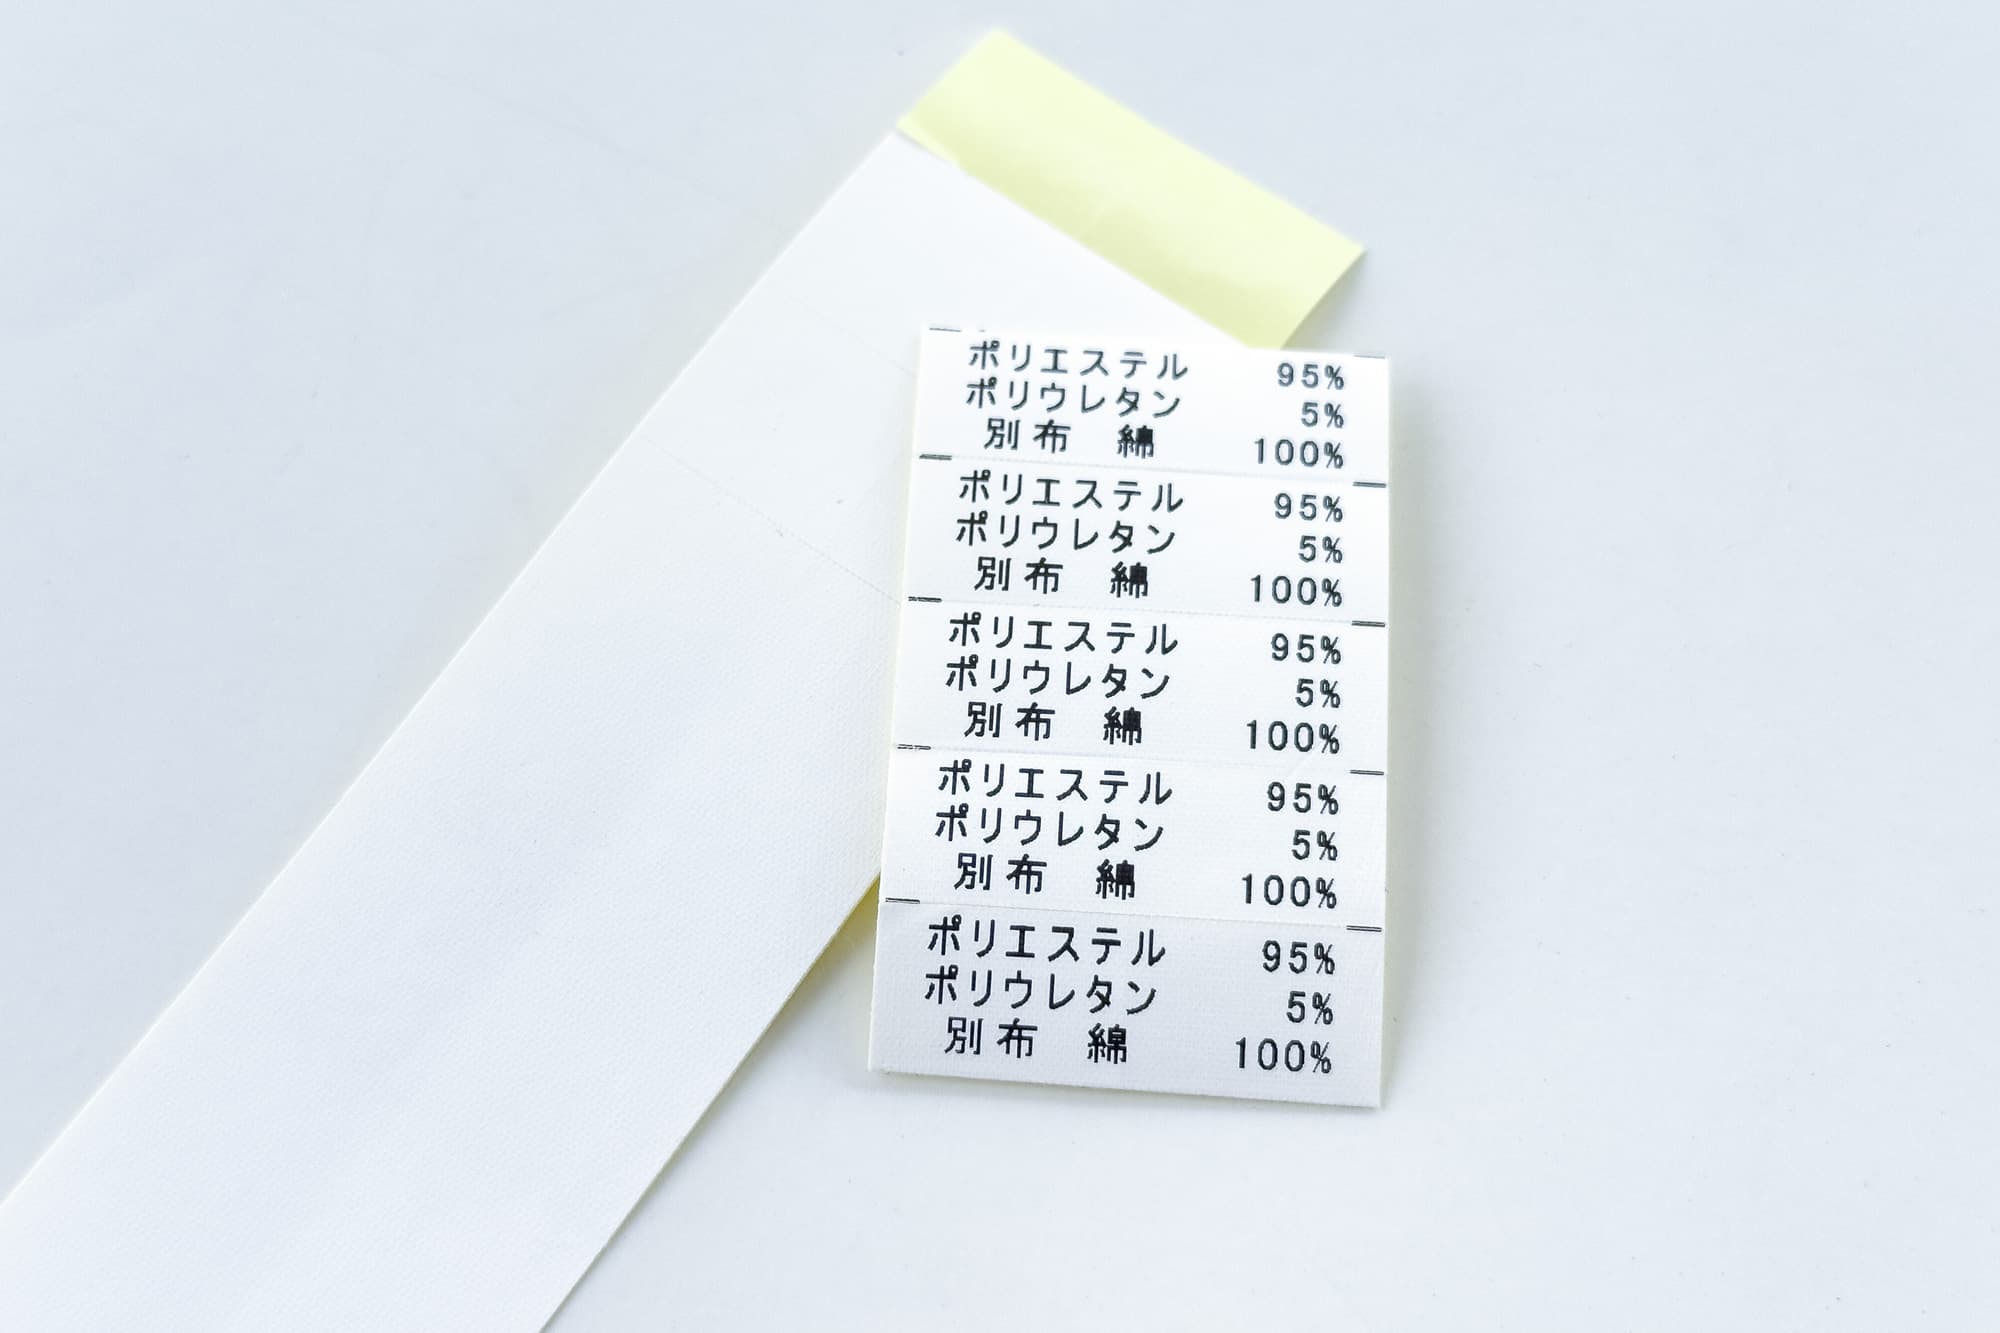 ポリエステル 95%
ポリウレタン 5%
別布 綿 100%
ポリエステル 95%
ポリウレタン 5%
別布 綿 100%
ポリエステル 95%
ポリウレタン 5%
別布 綿 100%
ポリエステル 95%
ポリウレタン 5%
別布 綿 100%
ポリエステル 95%
ポリウレタン 5%
別布 綿 100%